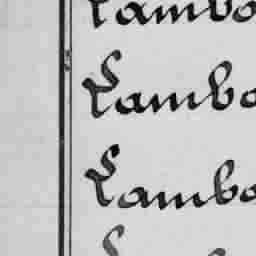 Lambo
Lambo
Lambo